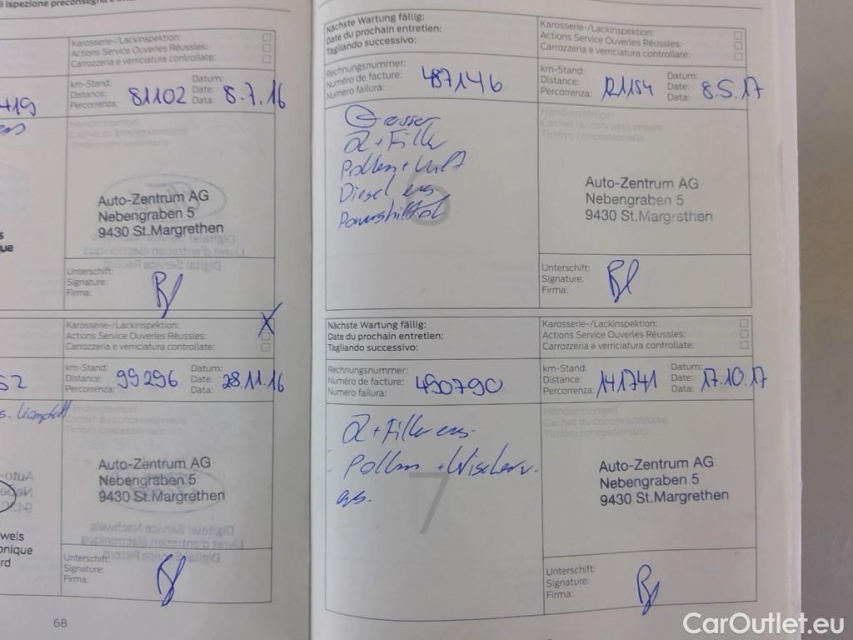 Karosserie-/Lackinspektion:
Actions Service Ouverles Réussies:
Carrozzeria e verniciatura controllate:
km-Stand: Datum:
Distance: 81102 Date: 8.7.16
Percorrenza: Data:
Auto-Zentrum AG
Nebengraben 5
9430 St.Margrethen
Unterschrift:
Signature:
Firma:
Karosserie-/Lackinspektion:
Actions Service Ouverles Réussies:
Carrozzeria e verniciatura controllate:
km-Stand: Datum:
Distance: 99296 Date: 28.11.16
Percorrenza: Data:
Auto-Zentrum AG
Nebengraben 5
9430 St.Margrethen
Unterschrift:
Signature:
Firma:
68
Nächste Wartung fällig:
Date du prochain entretien:
Tagliando successivo:
Karosserie-/Lackinspektion:
Actions Service Ouverles Réussies:
Carrozzeria e verniciatura controllate:
Rechnungsnummer:
Numéro de facture: 487146
Numero failura:
km-Stand: Datum:
Distance: 121154 Date: 8.5.17
Percorrenza: Data:
Pollen +
Diesel ers.
6
Auto-Zentrum AG
Nebengraben 5
9430 St.Margrethen
Unterschrift:
Signature:
Firma:
Nächste Wartung fällig:
Date du prochain entretien:
Tagliando successivo:
Karosserie-/Lackinspektion:
Actions Service Ouverles Réussies:
Carrozzeria e verniciatura controllate:
Rechnungsnummer:
Numéro de facture: 490790
Numero failura:
km-Stand: Datum:
Distance: 141741 Date: 17.10.17
Percorrenza: Data:
Öl + Filter ers.
Pollen + Wischerv.
ers.
7
Auto-Zentrum AG
Nebengraben 5
9430 St.Margrethen
Unterschrift:
Signature:
Firma:
CarOutlet.eu